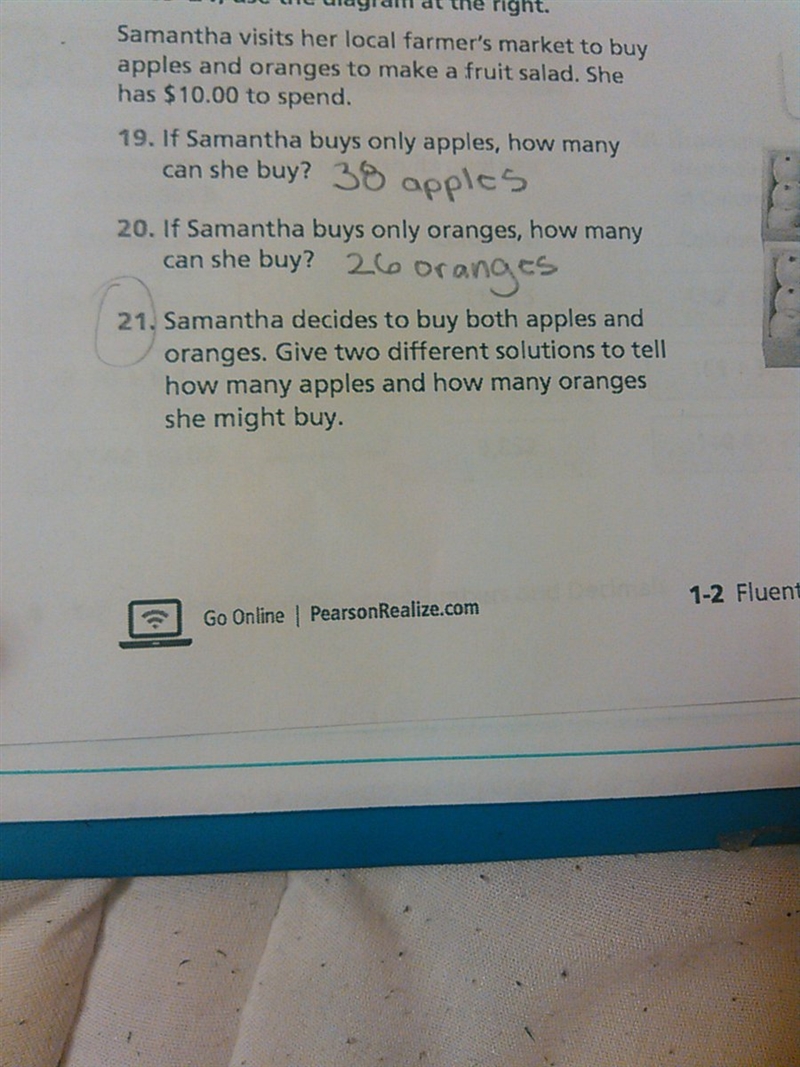 use the diagram at the right.
Samantha visits her local farmer's market to buy
apples and oranges to make a fruit salad. She
has $10.00 to spend.
19. If Samantha buys only apples, how many
can she buy? 38 apples
20. If Samantha buys only oranges, how many
can she buy? 26 oranges
21. Samantha decides to buy both apples and
oranges. Give two different solutions to tell
how many apples and how many oranges
she might buy.
Go Online | PearsonRealize.com
1-2 Fluent